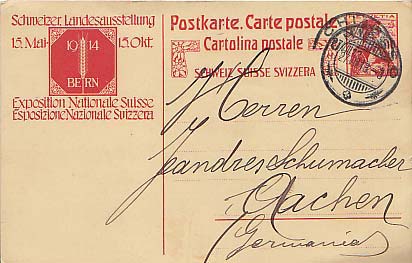 Schweizer. Landesausstellung
15. Mai- 15. Okt.
19 14
BERN
Exposition Nationale Suisse
Esposizione Nazionale Svizzera
Postkarte. Carte postale
Cartolina postale
SCHWEIZ SUISSE SVIZZERA
Herren
Jeandres Schumacher
Aachen
Germania